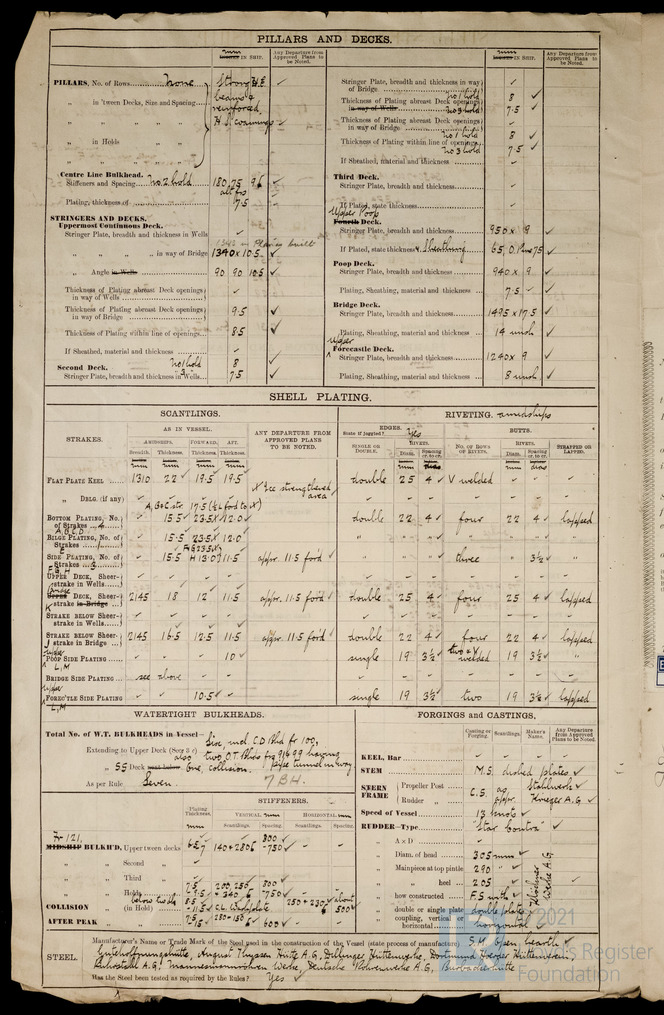 PILLARS AND DECKS.
mm
IN SHIP.
Any Departure from Approved Plans to be Noted.
mm
IN SHIP.
Any Departure from Approved Plans to be Noted.
PILLARS, No. of Rows none Strong
" in 'tween Decks, Size and Spacing beams &
reinforced
H.S. coamings ✓
" in Holds
Centre Line Bulkhead.
Stiffeners and Spacing No 2 hold 180.75
Plating, thickness of 7.5
STRINGERS AND DECKS.
Uppermost Continuous Deck.
Stringer Plate, breadth and thickness in Wells
" " " in way of Bridge 1340 x 10.5 ✓
" Angle in Wells 90 90 10.5 ✓
Thickness of Plating abreast Deck openings in way of Wells
Thickness of Plating abreast Deck openings in way of Bridge 9.5 ✓
Thickness of Plating within line of openings 8.5 ✓
If Sheathed, material and thickness ✓
Second Deck. No 1 hold 8 ✓
Stringer Plate, breadth and thickness in Wells 7.5
Stringer Plate, breadth and thickness in way of Bridge
Thickness of Plating abreast Deck openings in way of Wells No 1 hold 8 ✓
No 3 hold 7.5
Thickness of Plating abreast Deck openings in way of Bridge
Thickness of Plating within line of openings No 1 hold 8 ✓
No 3 hold 7.5
If Sheathed, material and thickness
Third Deck.
Stringer Plate, breadth and thickness
If Plated, state thickness
Upper Poop
Fourth Deck.
Stringer Plate, breadth and thickness 950 x 9 ✓
If Plated, state thickness & Sheathing 65 O. Pine 75 ✓
Poop Deck.
Stringer Plate, breadth and thickness 940 x 9 ✓
Plating, Sheathing, material and thickness 7.5 ✓
Bridge Deck.
Stringer Plate, breadth and thickness 1495 x 17.5 ✓
Plating, Sheathing, material and thickness 14 ✓
Upper
Forecastle Deck.
Stringer Plate, breadth and thickness 1240 x 9 ✓
Plating, Sheathing, material and thickness 8 ✓
SHELL PLATING.
SCANTLINGS.
RIVETING. amidships
STRAKES.
AS IN VESSEL.
AMIDSHIPS. FORWARD. AFT.
Breadth. Thickness. Thickness. Thickness.
ANY DEPARTURE FROM APPROVED PLANS TO BE NOTED.
EDGES.
State if joggled? Yes
SINGLE OR DOUBLE.
RIVETS.
Diam. Spacing cr. to cr.
BUTTS.
No. OF ROWS OF RIVETS.
RIVETS.
Diam. Spacing cr. to cr.
STRAPPED OR LAPPED.
FLAT PLATE KEEL 1310 22 ✓ 19.5 19.5 See strengthened area double 25 4 ✓ V welded
" DBLG. (if any)
BOTTOM PLATING, No. of Strakes 4 15.5 ✓ 23.5 12.0 double 22 4 ✓ four 22 4 ✓ lapped
BILGE PLATING, No. of Strakes 15.5 23.5 12.0
SIDE PLATING, No. of Strakes 15.5 H 13.0 11.5 appr. 11.5 for'd ✓ three 3½ ✓
UPPER DECK, Sheerstrake in Wells
Bridge
UPPER DECK, Sheerstrake in Bridge 2145 18 12 11.5 appr. 11.5 for'd ✓ double 25 4 ✓ four 25 4 ✓ lapped
STRAKE BELOW Sheerstrake in Wells
STRAKE BELOW Sheerstrake in Bridge 2145 16.5 12.5 11.5 appr. 11.5 for'd ✓ double 22 4 ✓ four 22 4 ✓ lapped
Upper
POOP SIDE PLATING 10 ✓ single 19 3½ ✓ two & V welded 19 3½ ✓ "
L, M
BRIDGE SIDE PLATING see above
Upper
FOREC'TLE SIDE PLATING 10.5 ✓ single 19 3½ ✓ two 19 3½ ✓ lapped
L, M
WATERTIGHT BULKHEADS.
Total No. of W.T. BULKHEADS in Vessel— Six, incl. C.D. Bhd fr 100,
Extending to Upper Deck (Sec. 3 c) also two O.T. Bhds having
" SS Deck One, collision. pipe tunnel in way
As per Rule Seven. 7 BH.
Plating Thickness.
STIFFENERS.
VERTICAL. HORIZONTAL.
Scantlings. Spacing. Scantlings. Spacing.
Fr 121,
MIDSHIP BULKH'D, Upper tween decks 6.5 140 800 750
" " Second "
" " Third " 7.5 200 250 800
" " Holds 9.5 340 750
COLLISION (in Hold) 8.5 11.5 C.L. Washplate 250 about 500
AFTER PEAK 7.5 15 280 600 ✓
FORGINGS and CASTINGS.
Casting or Forging. Scantlings. Maker's Name. Any Departure from Approved Plans to be Noted.
KEEL, Bar
STEM M.S. dished plates ✓
STERN FRAME Propeller Post C.S. as Stahlwerk
Rudder " appr. Krieger A.G. ✓
Speed of Vessel 13 knots ✓
RUDDER—Type "Star Contra" ✓
" A x D
" Diam. of head 305 mm ✓
" Mainpiece at top pintle 290 "
" " heel 205 "
" how constructed F.S. with ✓
" double or single plate double plate ✓
" coupling, vertical or horizontal horizontal ✓
STEEL.
Manufacturer's Name or Trade Mark of the Steel used in the construction of the Vessel (state process of manufacture) S.M. Open hearth ✓
Gutehoffnungshütte, August Thyssen Hütte A.G., Dillinger Hüttenwerke, Dortmund Hoerder Hüttenverein,
Ruhrstahl A.G., Mannesmannröhren Werke, Deutsche Röhrenwerke A.G., Burbacherhütte
Was the Steel tested as required by the Rules? Yes ✓
© 2021
Lloyd's Register
Foundation